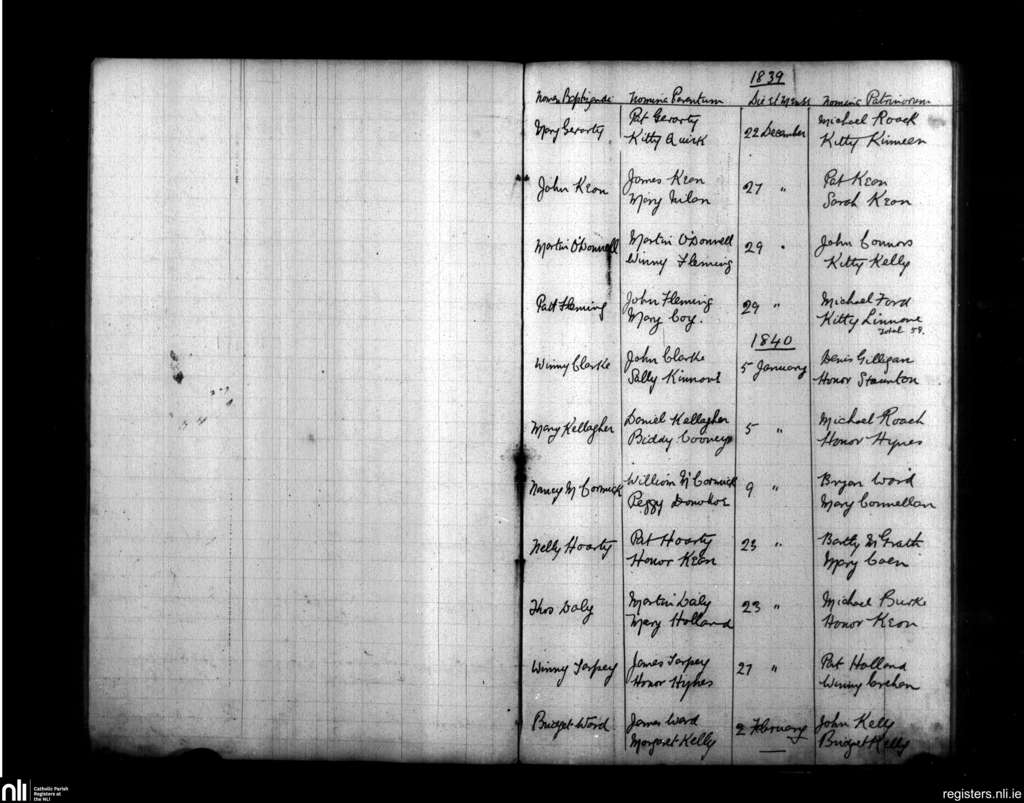 1839
Nomen Baptizandi Nomina Parentum Die et Mensis Nomina Patrinorum
Mary Gerarty Pat Gerarty 22 December Michael Roach
Kitty Quirk Kitty Kinneen
John Keon James Keon 27 " Pat Keon
Mary Nilan Sarah Keon
Martin O'Donnell Martin O'Donnell 29 " John Connors
Winny Fleming Kitty Kelly
Patt Fleming John Fleming 29 " Michael Ford
Mary Coy. Kitty Linnane
Total 59.
1840
Winny Clarke John Clarke 5 January Denis Gilligan
Sally Kinnons Honor Staunton
Mary Kellagher Daniel Kellagher 5 " Michael Roach
Biddy Cooneys Honor Hynes
Nancy McCormick William McCormick 9 " Bryan Ward
Peggy Donohoe Mary Connellan
Nelly Hoarty Pat Hoarty 23 " Bartly McGrath
Honor Keon Mary Coen
Thos Daly Martin Daly 23 " Michael Burke
Mary Holland Honor Keon
Winny Tarpey James Tarpey 27 " Pat Holland
Honor Hynes Winny Crehan
Bridget Ward James Ward 2 February John Kelly
Margaret Kelly Bridget Kelly
nli Catholic Parish
Registers at
the NLI
registers.nli.ie